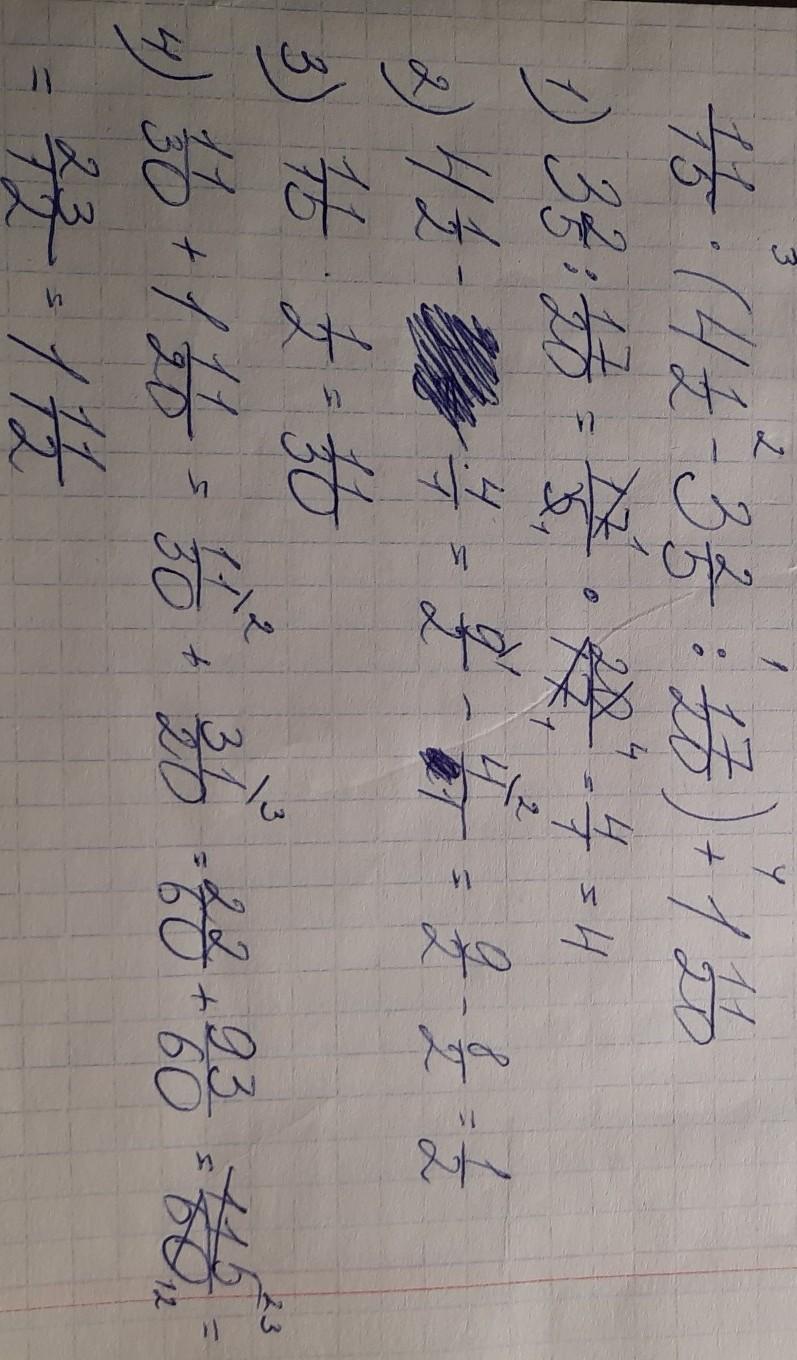 11/15 · (4 1/2 - 3 2/5 : 17/20) + 1 11/20
1) 3 2/5 : 17/20 = 17/5 · 20/17 = 4/1 = 4
2) 4 1/2 - 4/1 = 9/2 - 4/1 = 9/2 - 8/2 = 1/2
3) 11/15 · 1/2 = 11/30
4) 11/30 + 1 11/20 = 11/30 + 31/20 = 22/60 + 93/60 = 115/60 =
= 23/12 = 1 11/12